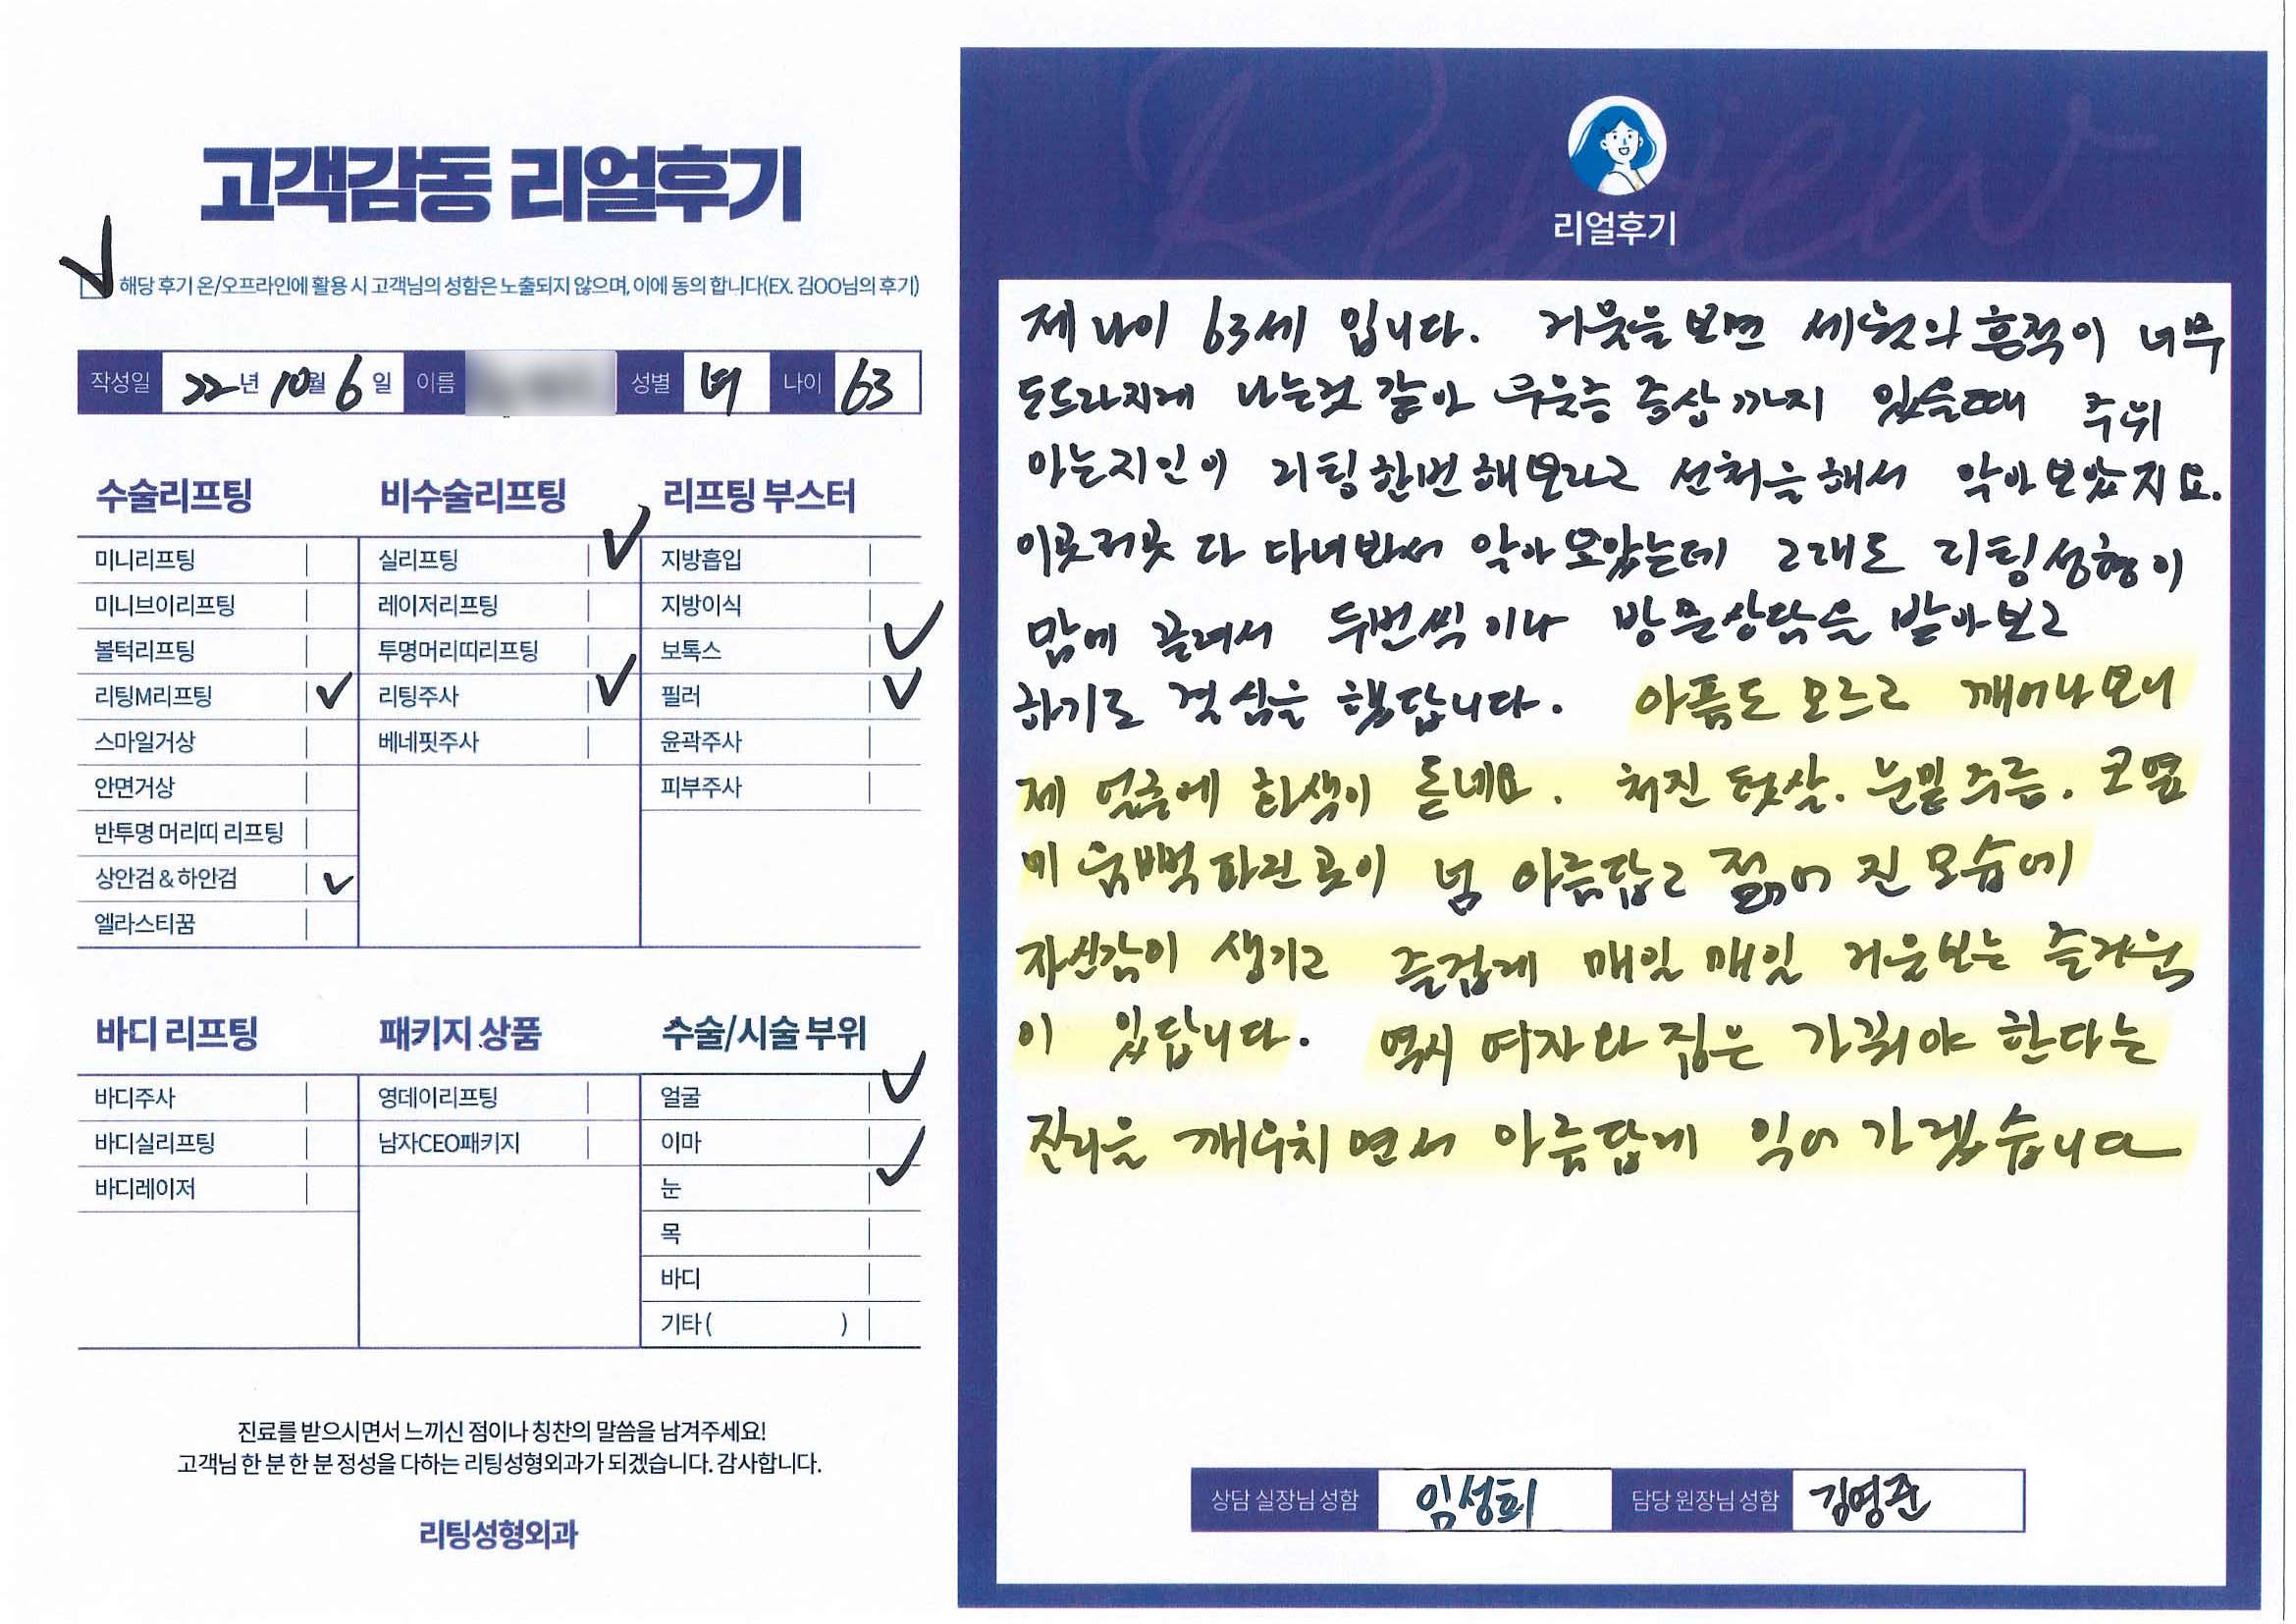 고객감동 리얼후기
해당 후기 온/오프라인에 활용 시 고객님의 성함은 노출되지 않으며, 이에 동의 합니다(EX. 김OO님의 후기)
작성일 22년 10월 6일 이름 성별 녀 나이 63
수술리프팅
미니리프팅
미니브이리프팅
볼턱리프팅
리팅M리프팅 ✓
스마일거상
안면거상
반투명 머리띠 리프팅
상안검 & 하안검 ✓
엘라스티꿈
비수술리프팅
실리프팅 ✓
레이저리프팅
투명머리띠리프팅
리팅주사 ✓
베네핏주사
리프팅 부스터
지방흡입
지방이식
보톡스 ✓
필러 ✓
윤곽주사
피부주사
바디 리프팅
바디주사
바디실리프팅
바디레이저
패키지 상품
영데이리프팅
남자CEO패키지
수술/시술 부위
얼굴 ✓
이마
눈 ✓
목
바디
기타 ( )
진료를 받으시면서 느끼신 점이나 칭찬의 말씀을 남겨주세요!
고객님 한 분 한 분 정성을 다하는 리팅성형외과가 되겠습니다. 감사합니다.
리팅성형외과
Review
리얼후기
제 나이 63세 입니다. 거웃을 보면 세월의 흔적이 너무
도드라지게 나는것 같아 우울증 증상까지 있을때 주위
아는지인이 리팅한번해보라고 선처을해서 알아보았지요.
이곳저곳 다 다녀봐서 알아보았는데 그래도 리팅성형이
맘에 끌려서 두번씩이나 방문상담을 받아보고
하기로 결심을 했답니다. 아픔도 모르고 깨어나보니
제 얼굴에 화색이 돋네요. 처진 턱살. 눈밑주름. 코옆
이 움뻑파인곳이 넘 아름답고 젊어 진 모습에
자신감이 생기고 즐겁게 매일 매일 거울보는 즐거움
이 있답니다. 역시 여자와 집은 가꿔야 한다는
진리을 깨우치면서 아름답게 익어 가겠습니다
상담 실장님 성함 임성희 담당 원장님 성함 김영준